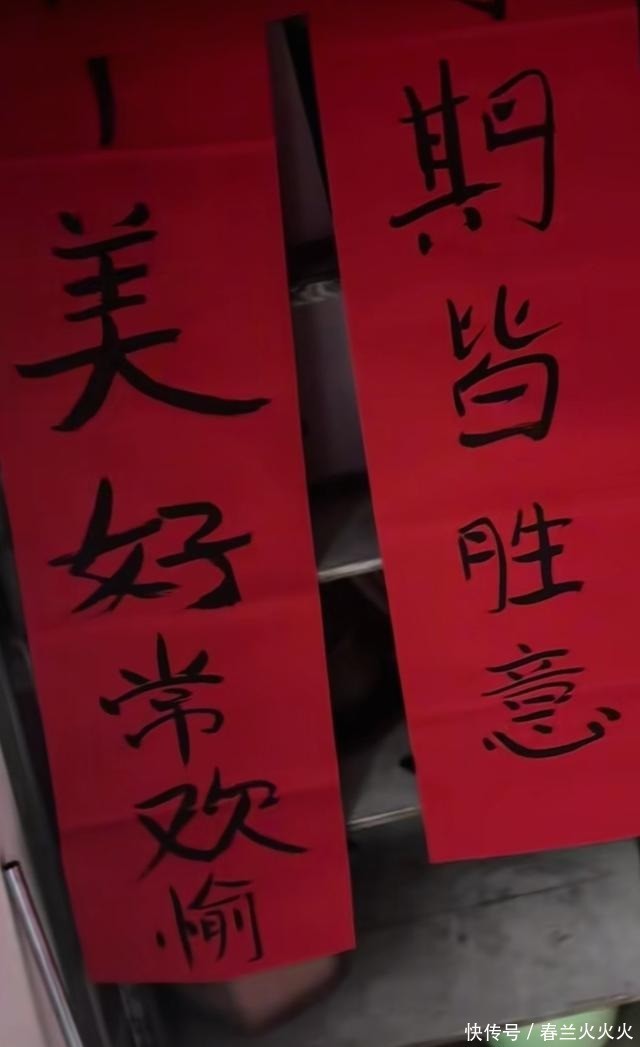 期皆胜意
美好常欢愉
快传号 / 春兰火火火